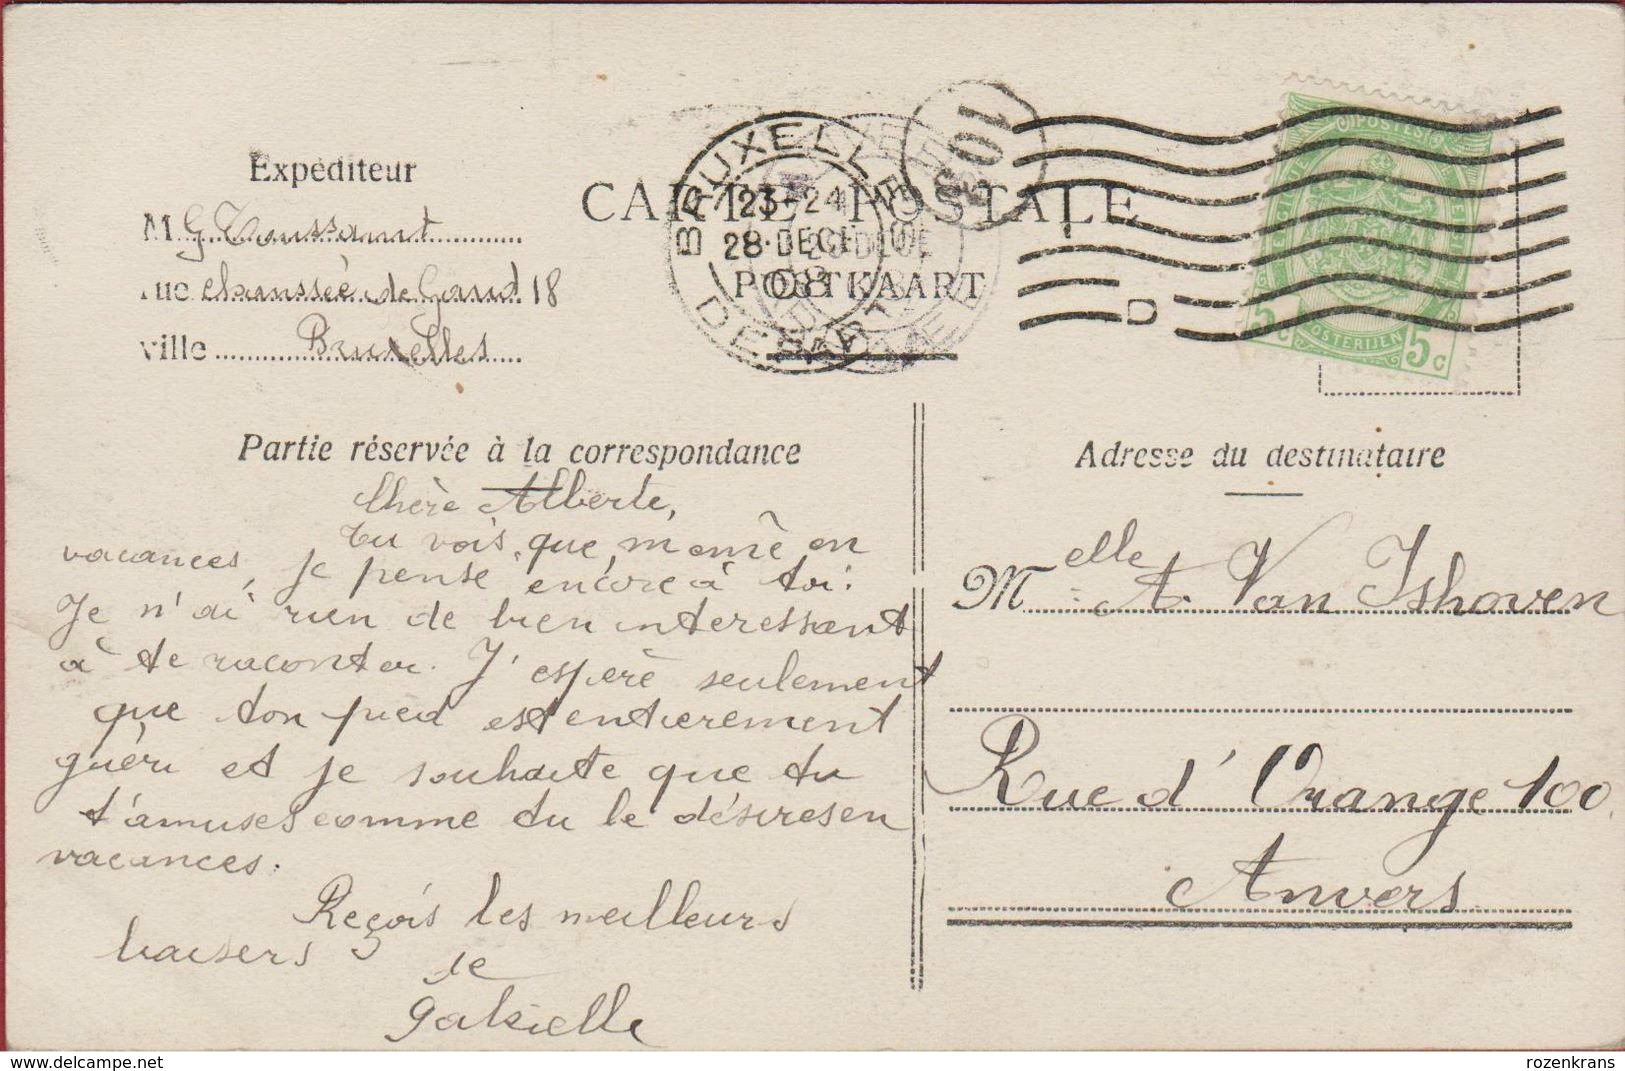 Expéditeur
M G Toussaint
rue chaussée de Gand 18
ville Bruxelles
CARTE POSTALE
POSTKAART
BRUXELLES
23-24
28·DECE
08
DEPART
D
POSTES
POSTERIJEN
5c 5c
Partie réservée à la correspondance
Chère Alberte,
Tu vois, que, même en
vacances, je pense encore à toi.
Je n'ai rien de bien interessant
à te raconter. J'espère seulement
que ton pied est entierement
guéri et je souhaite que tu
t'amuses comme tu le désires en
vacances.
Reçois les meilleurs
baisers
de
Gabrielle
Adresse du destinataire
Melle A. Van Ishoven
Rue d'Orange 100
Anvers
delcampe.net
rozenkrans